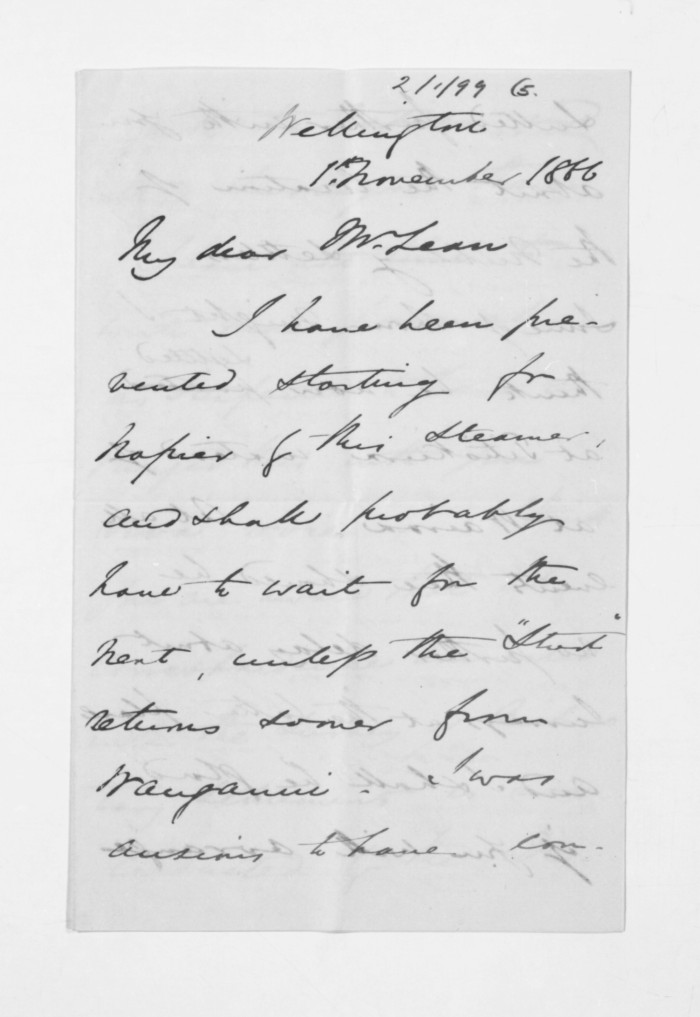 2/1/99 G.
Wellington
1st November 1866
My dear McLean
I have been pre-
vented starting for
Napier by this steamer,
and shall probably
have to wait for the
next, unless the "Sturt"
returns sooner from
Wanganui. I was
anxious to have con-